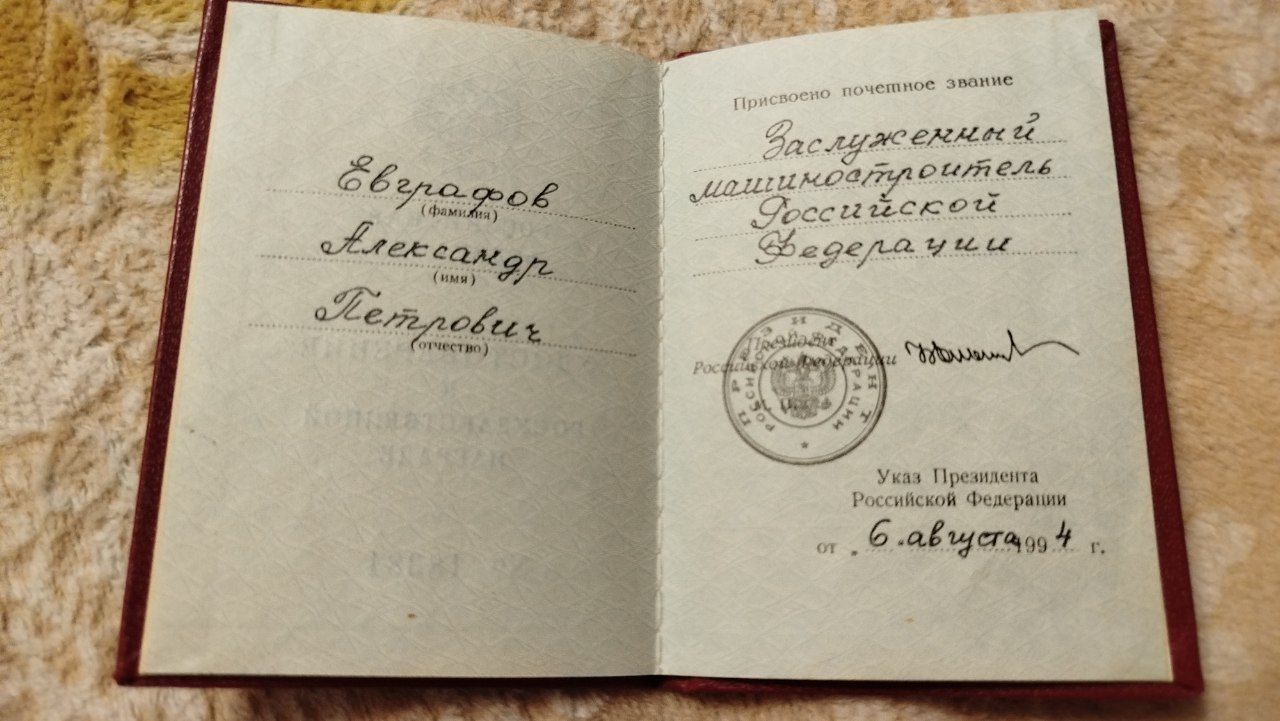 Евграфов
(фамилия)
Александр
(имя)
Петрович
(отчество)
Присвоено почетное звание
Заслуженный
машиностроитель
Российской
Федерации
Президент
Российской Федерации
ПРЕЗИДЕНТ
РОССИЙСКОЙ ФЕДЕРАЦИИ
Указ Президента
Российской Федерации
от „ 6 „ августа 1994 г.